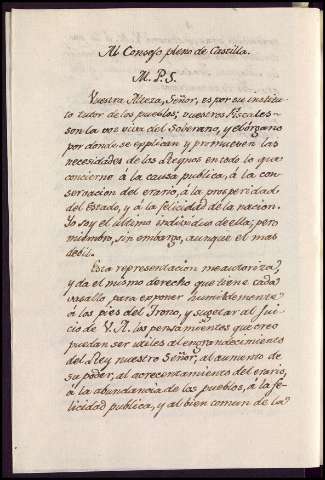 Al Consejo pleno de Castilla.
M. P. S.
Vuestra Alteza, Señor, es por su institu-
to tutor de los pueblos; vuestros Fiscales
son la voz viva del Soberano, y el órgano
por donde se explican y promueven las
necesidades de los Reynos en todo lo que
concierne á la causa publica, á la con-
servacion del erario, á la prosperidad
del Estado, y á la felicidad de la nacion.
Yo soy el ultimo individuo de ella; pero
miembro, sin embargo, aunque el mas
debil.
Esta representacion me autoriza,
y da el mismo derecho que tiene cada
vasallo para exponer humildemente
á los pies del Trono, y sugetar al jui-
cio de V. A. los pensamientos que creo
puedan ser utiles al engrandecimiento
del Rey nuestro Señor, al aumento de
su poder, al acrecentamiento del erario,
á la abundancia de los pueblos, á la fe-
licidad publica, y al bien comun de la